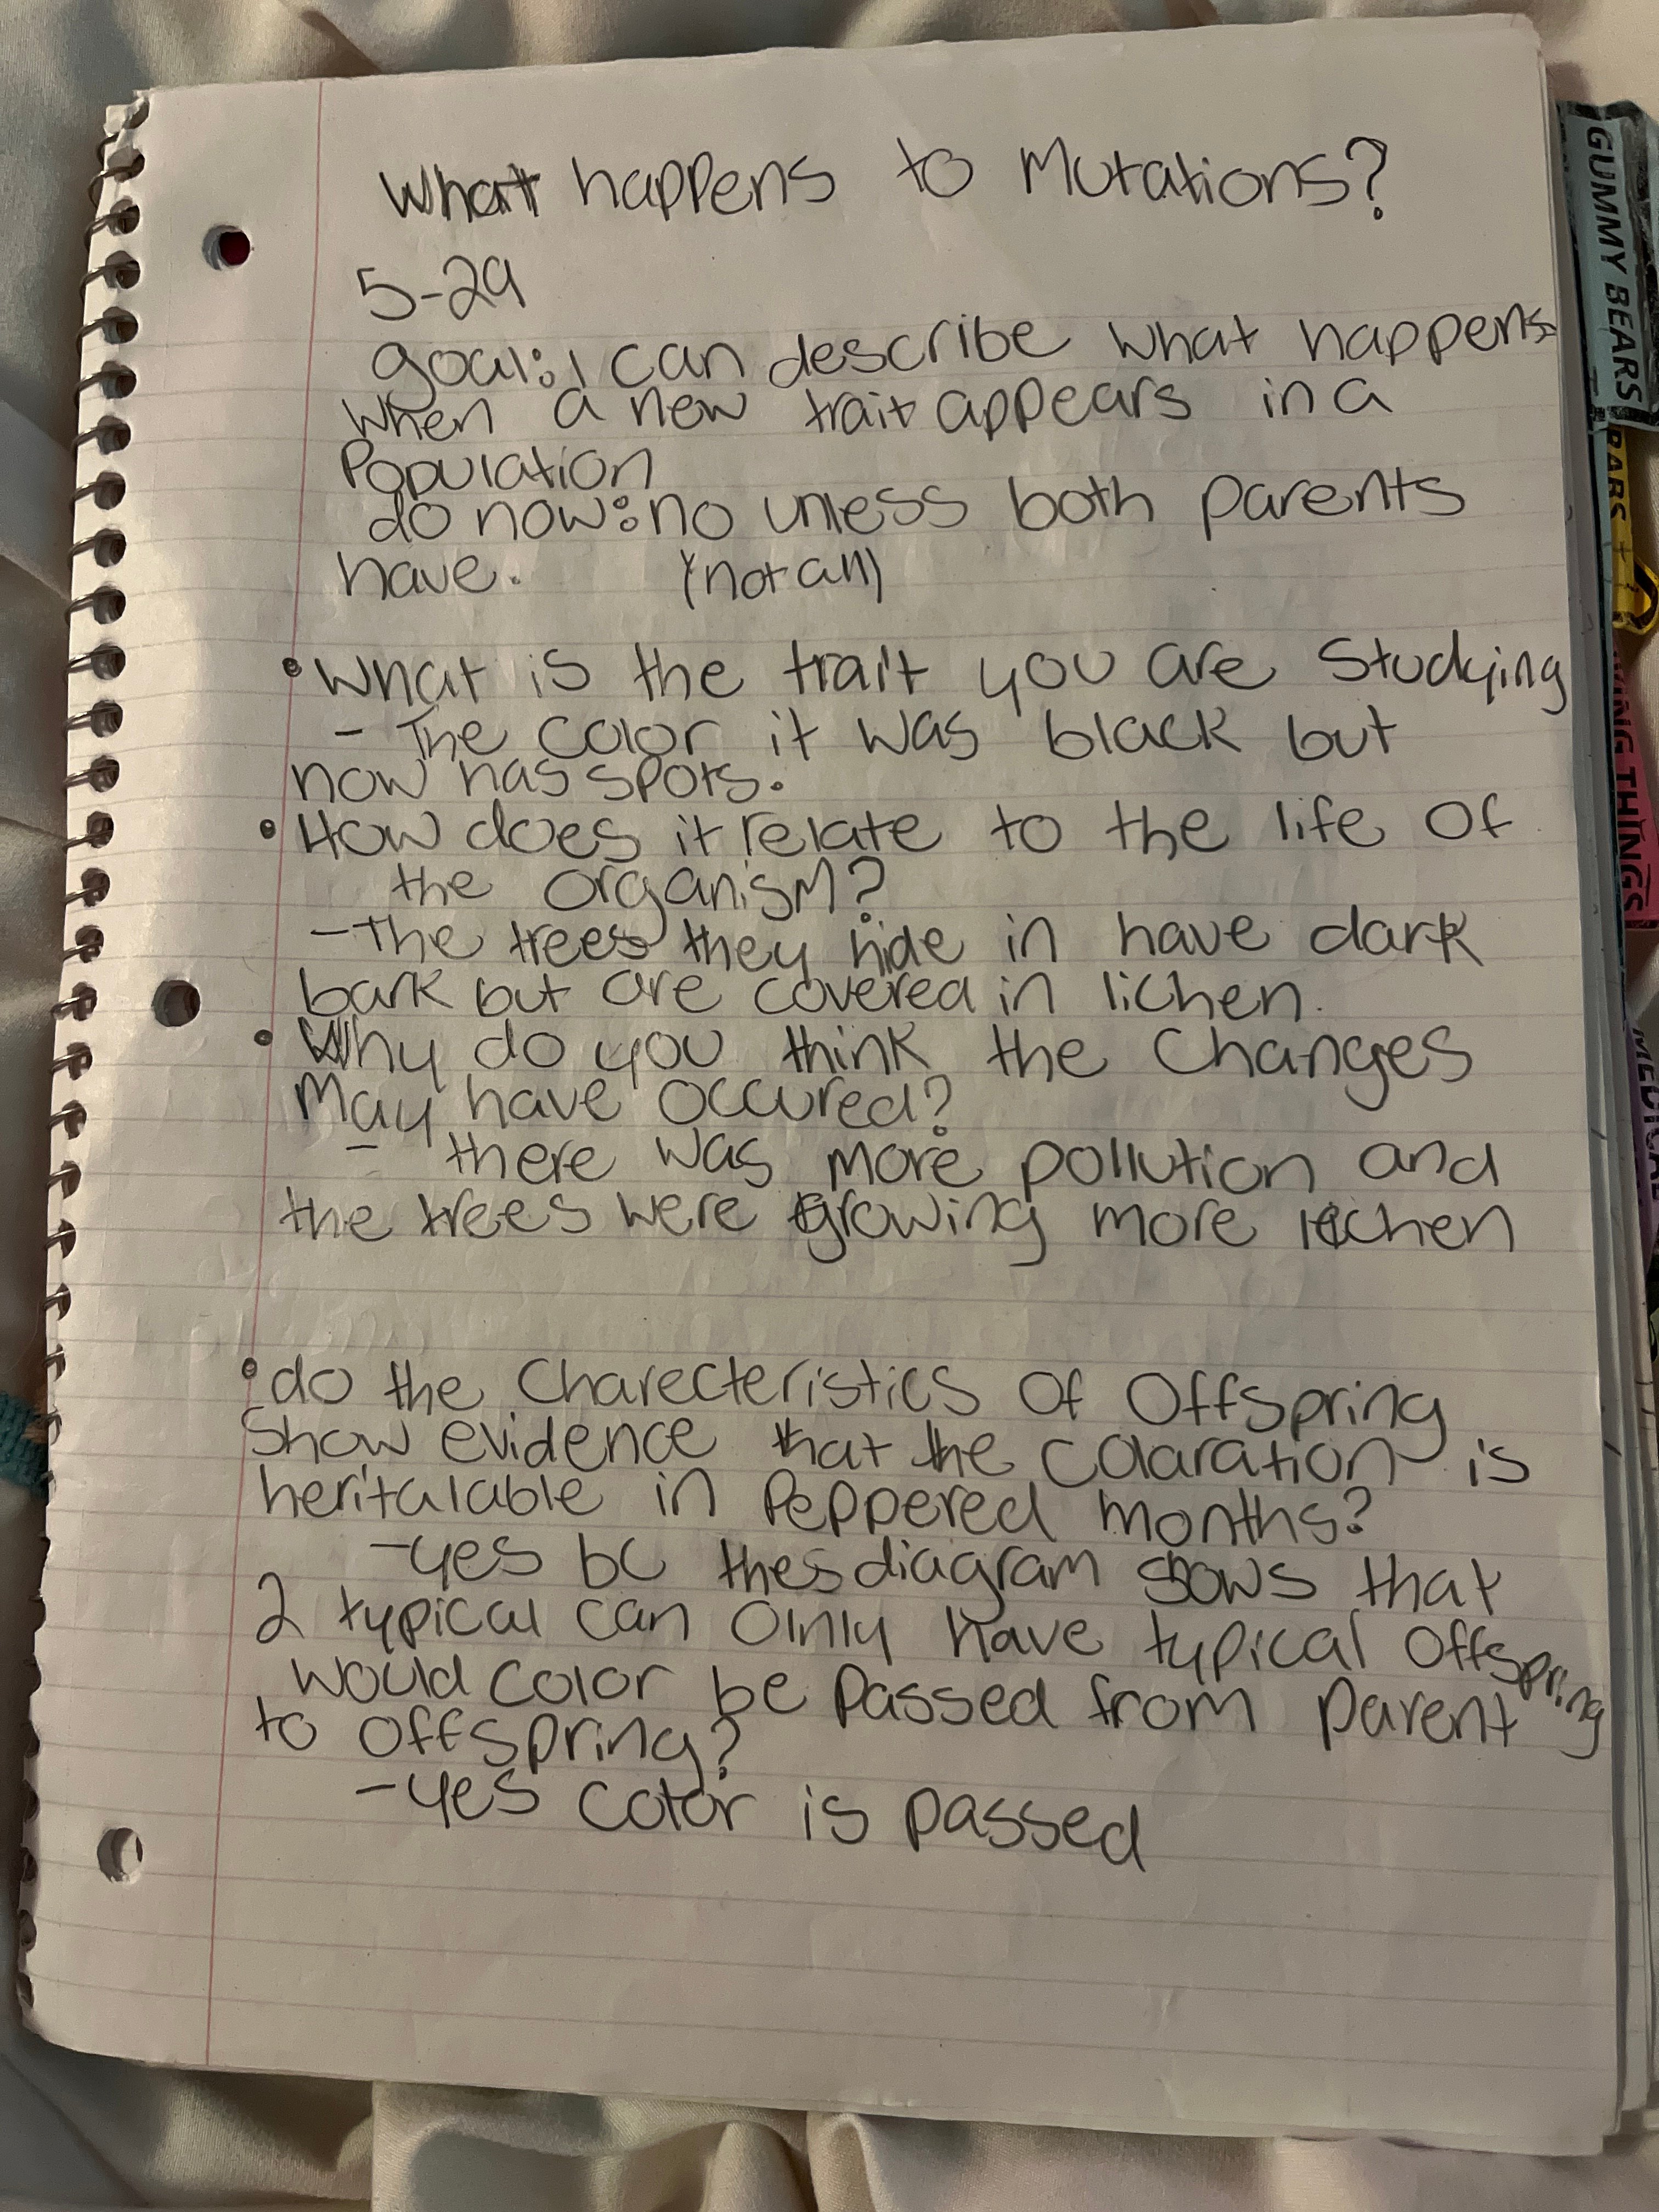 What happens to Mutations?
5-29
goal: I can describe what happens
when a new trait appears in a
Population
do now: no unless both parents
have. (not all)
• What is the trait you are studying
- The color it was black but
now has spots.
• How does it relate to the life of
the organism?
- The trees they hide in have dark
bark but are covered in lichen.
• Why do you think the changes
May have occured?
- there was more pollution and
the trees were growing more lichen
• do the charecteristics of offspring
Show evidence that the colaration is
heritalable in Peppered months?
- yes bc thes diagram shows that
2 typical can Olnly have typical offspring
would color be passed from parent
to offspring?
- yes color is passed
GUMMY BEARS
BARS
THINGS
MEDICAL